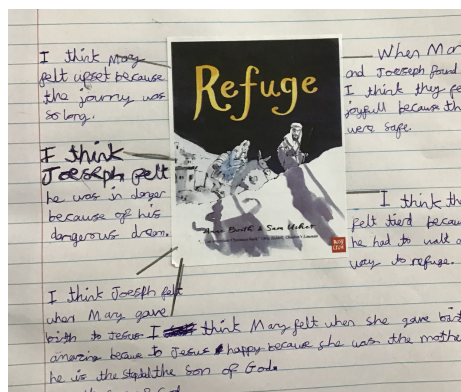 I think Mary
felt upset because
the journy was
so long.
I think
Joeseph felt
he was in danger
because of his
dangerous dream.
Refuge
Anne Booth & Sam Usher
When Mar
and Joeseph found
I think they fe
joyfull because th
were safe.
I think th
felt tierd becau
he had to walk a
way to refuge.
I think Joesph felt
when Mary gave
birth to Jesus
amazing becaue
he is the
the Son of God.
I think Mary felt when she gave birt
to Jesus happy because she was the mothe